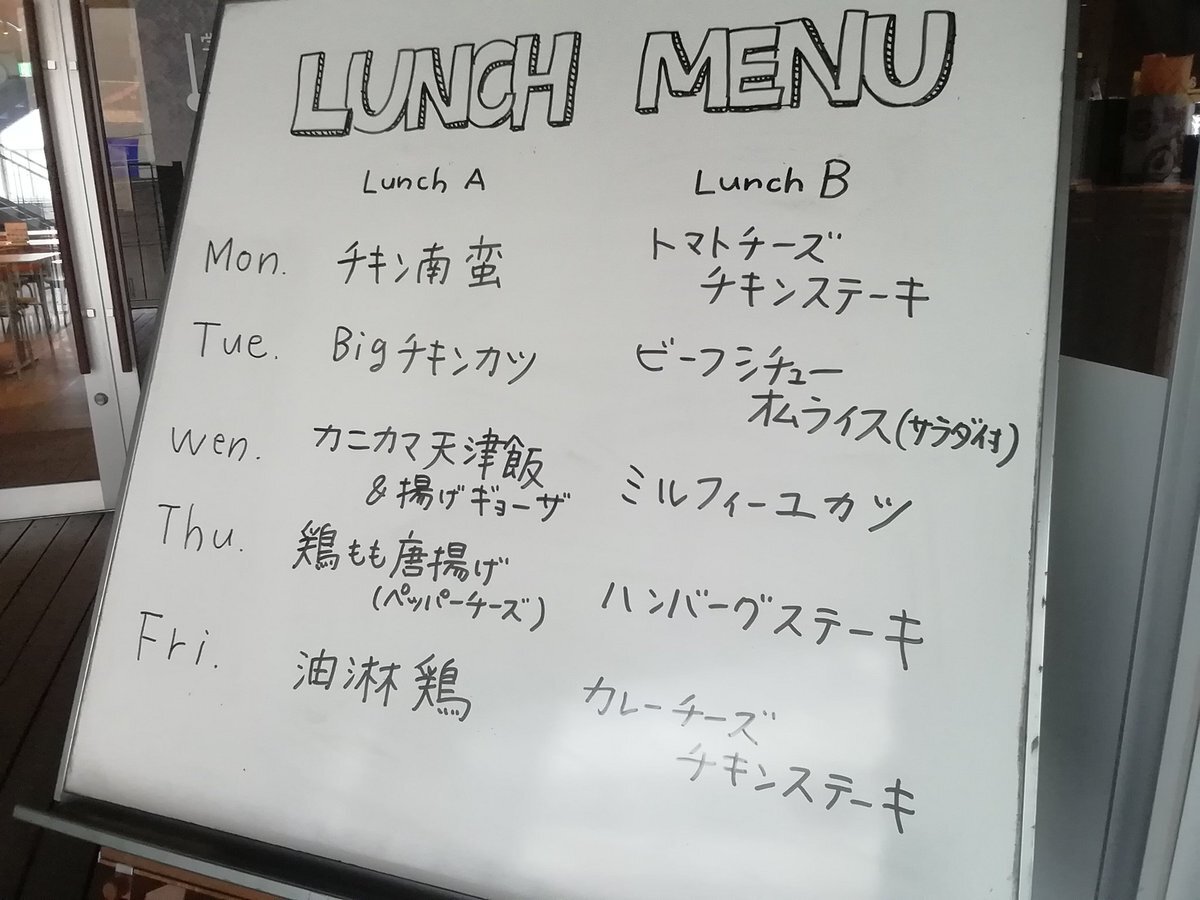 LUNCH MENU
Lunch A Lunch B
Mon. チキン南蛮 トマトチーズ
チキンステーキ
Tue. Bigチキンカツ ビーフシチュー
オムライス(サラダ付)
Wen. カニカマ天津飯
&揚げギョーザ ミルフィーユカツ
Thu. 鶏もも唐揚げ
(ペッパーチーズ) ハンバーグステーキ
Fri. 油淋鶏 カレーチーズ
チキンステーキ